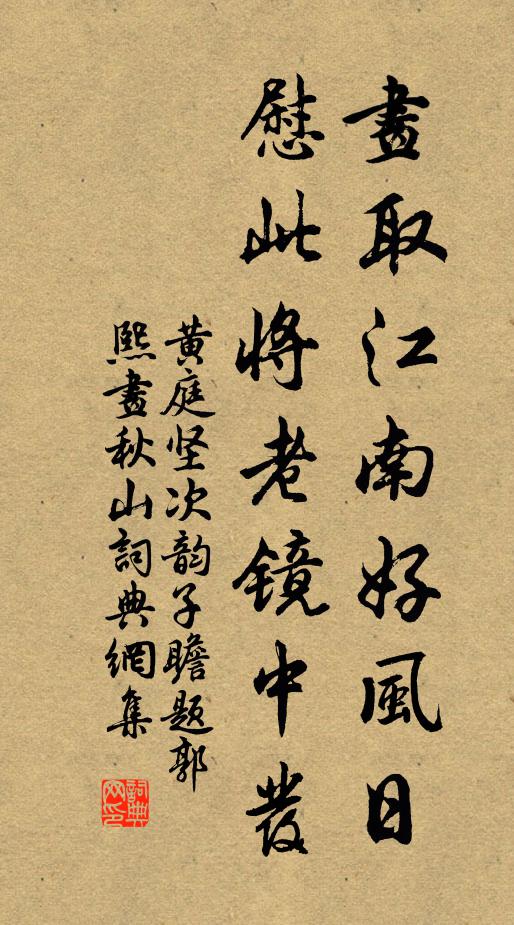 畫取江南好風日
慰此將老鏡中發
黄庭坚次韵子瞻題郭
熙畫秋山詞典網集
詞典
网印